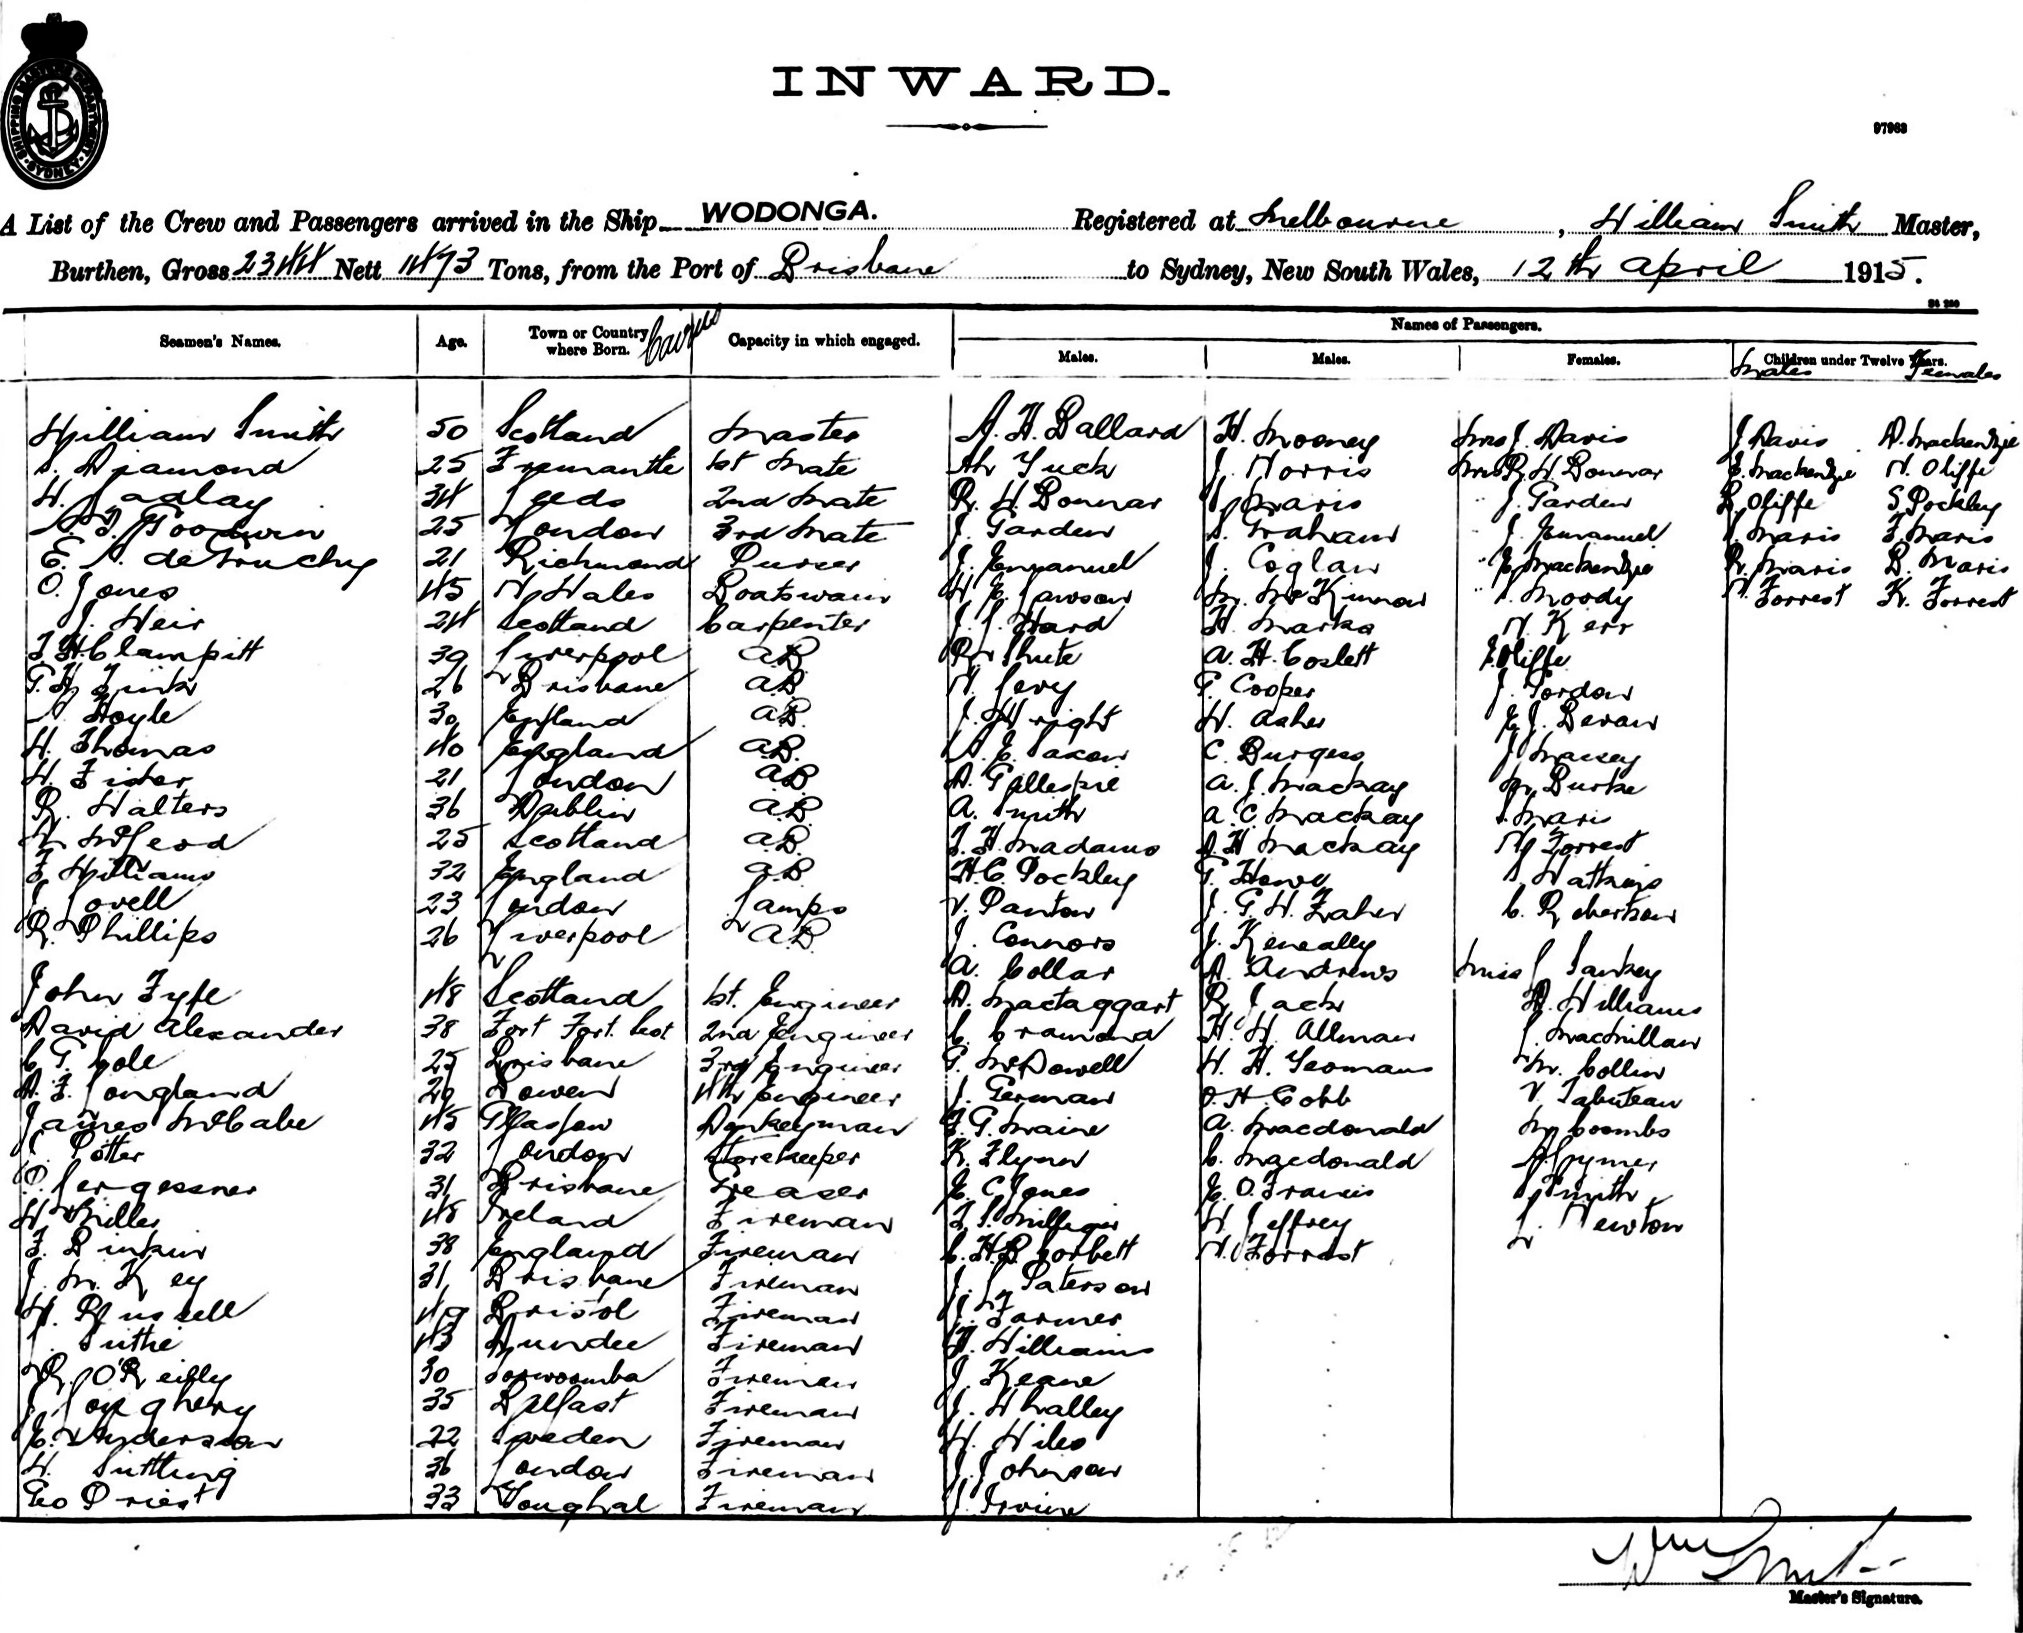 INWARD.
97963
A List of the Crew and Passengers arrived in the Ship WODONGA. Registered at Melbourne, William Smith Master,
Burthen, Gross 2344 Nett 1473 Tons, from the Port of Brisbane to Sydney, New South Wales, 12th April 1915.
Seamen's Names. Age. Town or Country where Born. Capacity in which engaged. Names of Passengers.
Males. Males. Females. Children under Twelve Years.
Males Females
William Smith 50 Scotland Master A. H. Ballard H. Mooney Mrs J. Davis J Davis D. Mackenzie
Diamond 25 Fremantle 1st Mate Tuck J. Norris Mrs R H Bonnar E. Mackenzie N. Oliffe
H. Laglay 34 Leeds 2nd Mate R. H. Bonnar Maris J. Garden R Oliffe S Pockley
Goodwin 25 London 3rd Mate J. Garden S. Graham J. Emanuel Maris F. Maris
E. A. deGruchy 21 Richmond Purser J. Emanuel J. Coglan E. Mackenzie R. Maris B. Maris
O. Jones 45 N Wales Boatswain H. E. Lawson M. McKinnon Moody N. Forrest K. Forrest
J. Weir 24 Scotland Carpenter Ward H. Marks N. Kerr
Clampitt 39 Liverpool A.B. R. Shute A. H. Coslett Oliffe
G. H. Fink 26 Brisbane A.B. N. Levy G. Cooper J. Gordon
A. Hoyle 30 England A.B. J. Wright W. Asher E. J. Bevan
H. Thomas 40 England A.B. A. E. Saxon C. Burgess J Massey
H. Fisher 21 London A.B. D. Gillespie A. J. Mackay M. Burke
R. Walters 36 Dublin A.B. A. Smith A. C. Mackay Maris
N McLeod 25 Scotland A.B. T. H. Madams D. H. Mackay N Forrest
F Williams 32 England A.B. H. C. Pockley G. Howe Watkins
J. Lovell 23 London Lamps V. Panton J. G. H. Fraher C. Robertson
R. Phillips 26 Liverpool A.B. J. Connors J. Keneally
A. Collar D. Andrews Miss Sankey
John Fyfe 48 Scotland 1st. Engineer D. Mactaggart R. Jack D. Williams
David Alexander 38 2nd Engineer C. Cramond H. H. Allman MacMillan
C G Cole 25 Brisbane 3rd Engineer G. McDowell W. H. Yeomans M. Collin
D. F. Longland 29 Bowen 4th Engineer J. German O. H. Cobb V. Tabuteau
James McCabe 45 Glasgow Donkeyman F. G. Maine A. Macdonald M Coombs
Potter 32 London Storekeeper K. Flynn C. Macdonald Pymer
P. Jorgessner 31 Brisbane Greaser E. C. Jones E. O. Francis Smith
H. Miller 48 Ireland Fireman T. S. Milligan W. Jeffrey L. Newton
F. Binkin 38 England Fireman C. H. B. Corbett N. Forrest
J. M. Key 31 Brisbane Fireman J. L. Paterson
H. Russell 49 Bristol Fireman J. Farmer
Duthie 43 Dundee Fireman Williams
R. O'Reilly 30 Toowoomba Fireman J. Keane
J. Loughery 35 Belfast Fireman J. Whalley
E. Anderson 22 Sweden Fireman W. Wiles
H. Suttling 36 London Fireman J. Johnson
Geo Priest 33 Youghal Fireman J. Irvine
Wm Smith
Master's Signature.